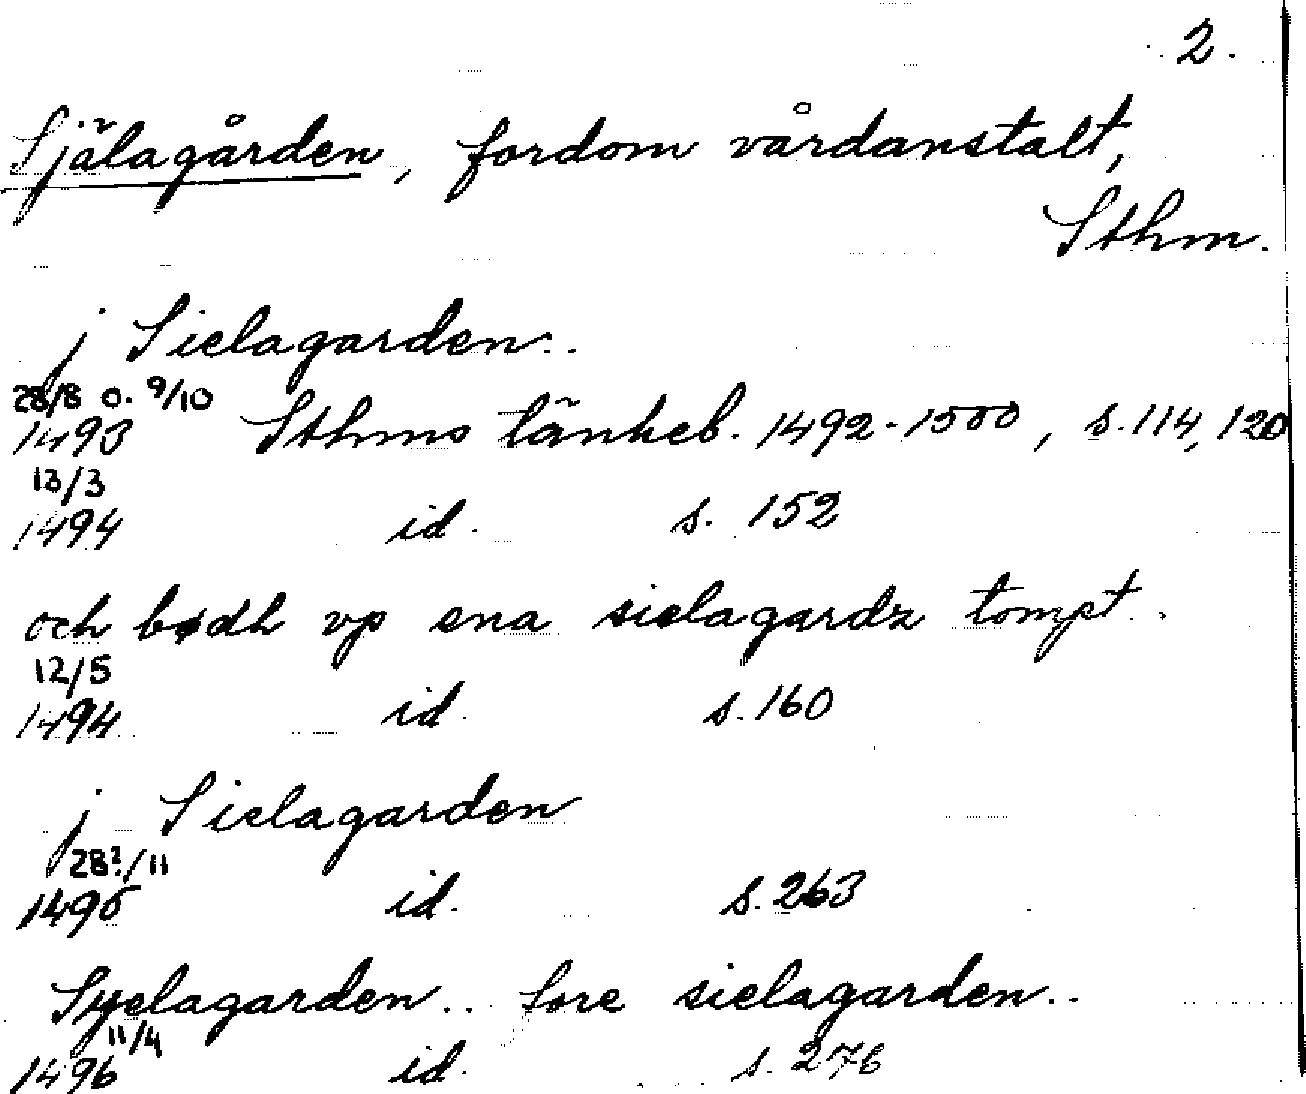 2.
Själagården, fordom vårdanstalt,
Sthm.
j Sielagarden..
28/8 o. 9/10
1493 Sthms tänkeb. 1492-1500, s. 114, 120
13/3
1494 id. s. 152
och bødh vp ena sielagardz tompt..
12/5
1494 id. s. 160
j Sielagarden
28?/11
1495 id. s. 263
Syelagarden.. fore sielagarden..
11/4
1496 id. s. 276